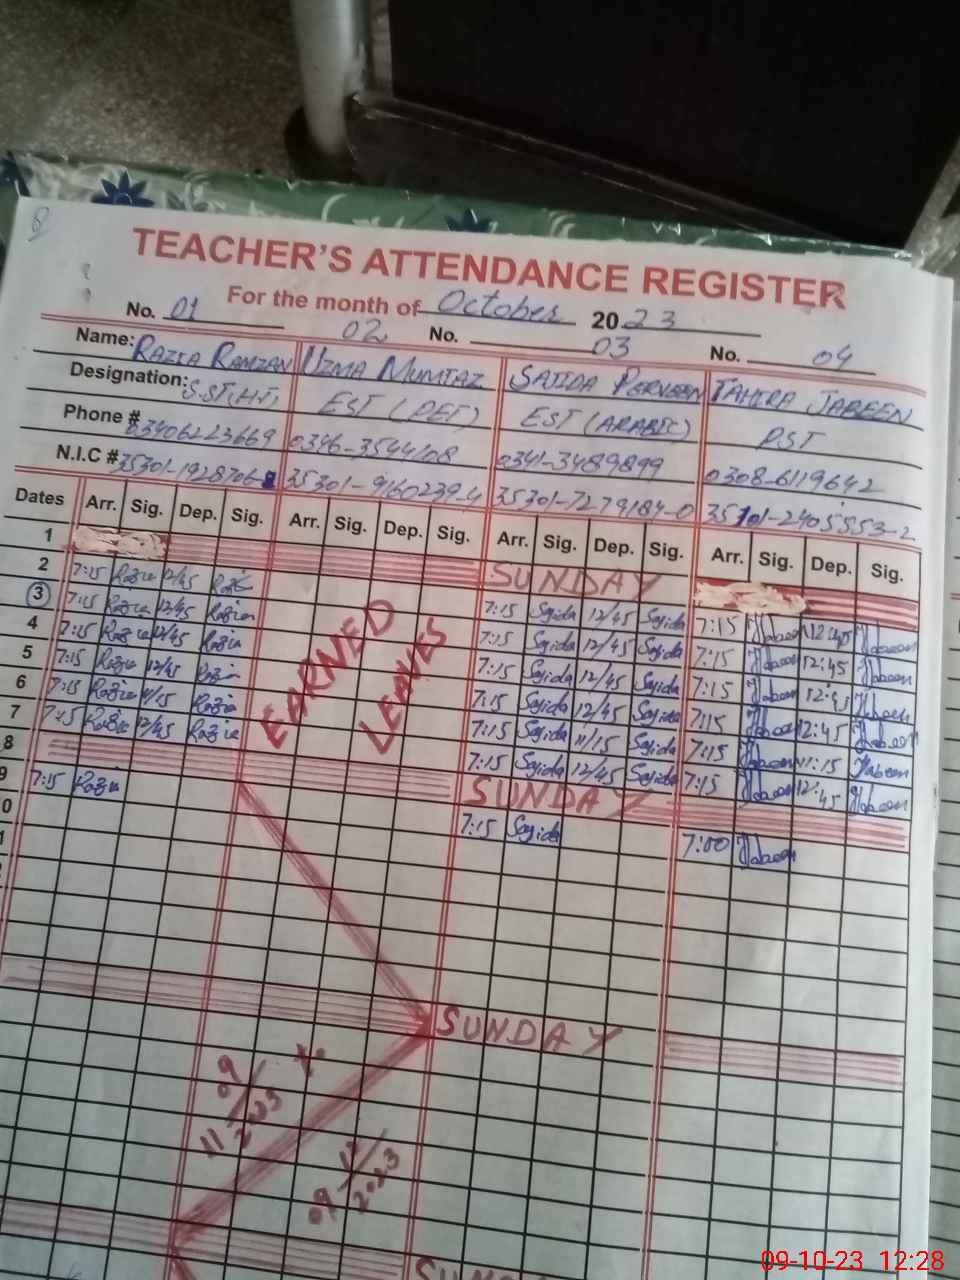 TEACHER'S ATTENDANCE REGISTER
For the month of October 2023
No. 01 02 No. 03 No. 04
Name: RAZIA RAMZAN UZMA MUMTAZ SAJIDA PERVEEN TAHIRA JABEEN
Designation: S.ST(HT) EST (PET) EST (ARABIC) PST
Phone # 03406223669 0346-3544108 0341-3489899 0308-6119642
N.I.C # 35301-1928706- 35301-9160239-4 35301-7279184-0 35101-2405553-2
Dates Arr. Sig. Dep. Sig. Arr. Sig. Dep. Sig. Arr. Sig. Dep. Sig. Arr. Sig. Dep. Sig.
1 SUNDAY
2 7:15 Razia 12/45 Razia 7:15 Sajida 12/45 Sajida 7:15 Jabeen 12:45 Jabeen
3 7:15 Razia 12/45 Razia 7:15 Sajida 12/45 Sajida 7:15 Jabeen 12:45 Jabeen
4 7:15 Razia 12/45 Razia 7:15 Sajida 12/45 Sajida 7:15 Jabeen 12:45 Jabeen
5 7:15 Razia 12/45 Razia 7:15 Sajida 12/45 Sajida 7:15 Jabeen 12:45 Jabeen
6 7:15 Razia 11/15 Razia 7:15 Sajida 11/15 Sajida 7:15 Jabeen 11:15 Jabeen
7 7:15 Razia 12/45 Razia 7:15 Sajida 12/45 Sajida 7:15 Jabeen 12:45 Jabeen
EARNED
LEAVES
8 SUNDAY
9 7:15 Razia 7:15 Sajida 7:00 Jabeen
0
1
SUNDAY
09
11 2023
12
09 2023
SUN
09-10-23 12:28